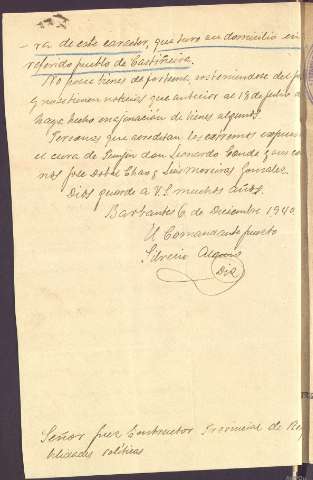 ra de este caracter, que tuvo su domicilio en
referido pueblo de Castiñeira.
No posee bienes de fortuna,
y no se tienen noticias que anterior al 18 de Julio d
haya hecho enajenación de bienes alguno.
Personas que acrediten los extremos expues
el cura de don Leonardo Conde y
nos José Dobal Chao y Luis Moreiras Gonzalez.
Dios guarde a V.S. muchos años.
Barbantes 6 de Diciembre 1940
El Comandante puesto
Silverio
Señor Juez Instructor Provincial de Res
bilidades políticas